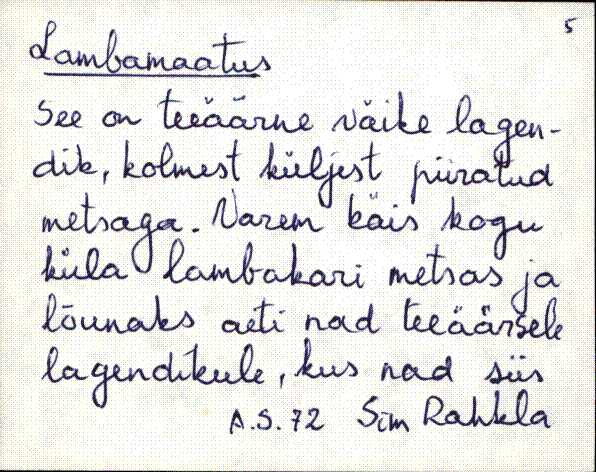 5
Lambamaatus
See on teeäärne väike lagen-
dik, kolmest küljest piiratud
metsaga. Varem käis kogu
küla lambakari metsas ja
lõunaks aeti nad teeäärsele
lagendikule, kus nad siis
A.S. 72 Sim Rahkla